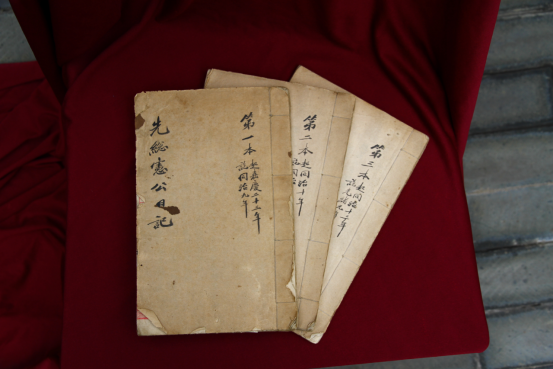 第一本起嘉慶二十三年
訖同治九年
先總憲公日記
第二本起同治十年
訖同治
第三本起同治十三年
訖光緒